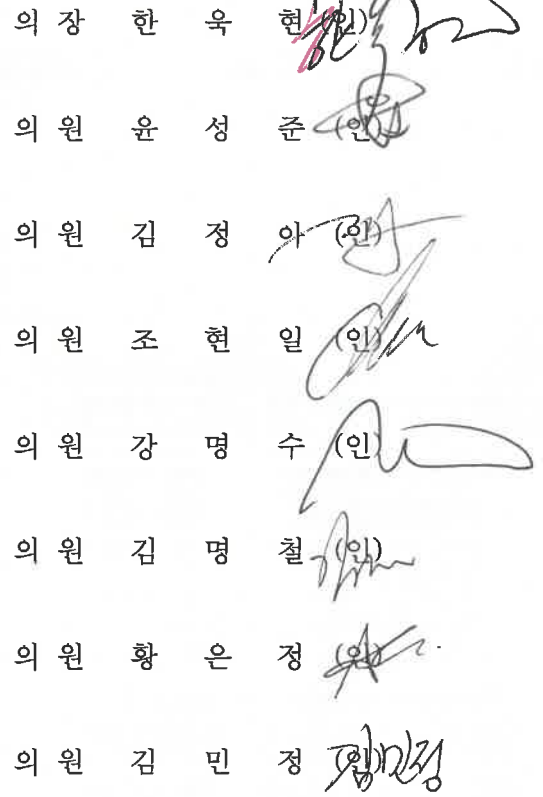 의 장 한 욱 현 (인)
의 원 윤 성 준 (인)
의 원 김 정 아 (인)
의 원 조 현 일 (인)
의 원 강 명 수 (인)
의 원 김 명 철 (인)
의 원 황 은 정 (인)
의 원 김 민 정 (인) 김민정